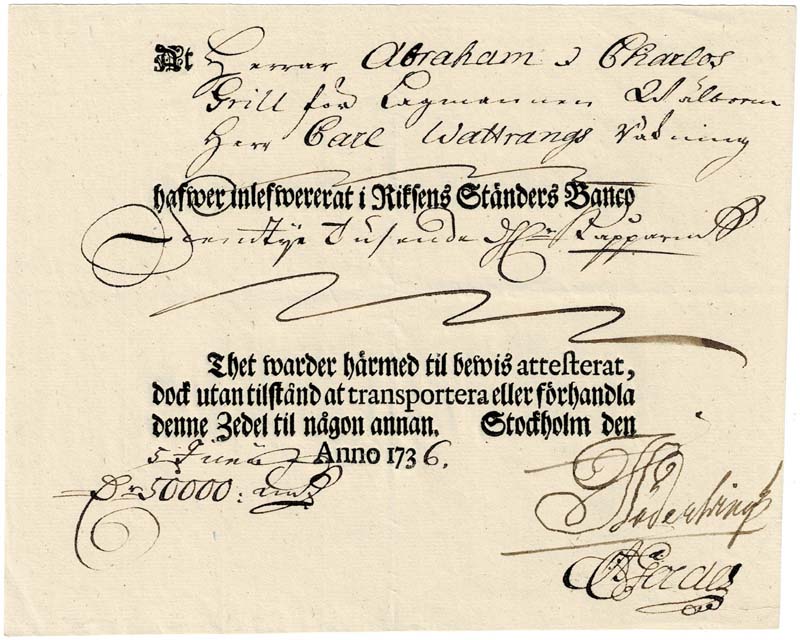 At Herrar Abraham & Charlos
Grill för Lagmannen Wälborne
Herr Carl Wattrangs Räkning
hafwer inlefwererat i Riksens Ständers Banco
Femtije Tusende Kopparmt
Thet warder härmed til bewis attesterat,
dock utan tilstånd at transportera eller förhandla
denne Zedel til någon annan. Stockholm den
5 Junii Anno 1736.
Dr 50000: kmt
Söderling